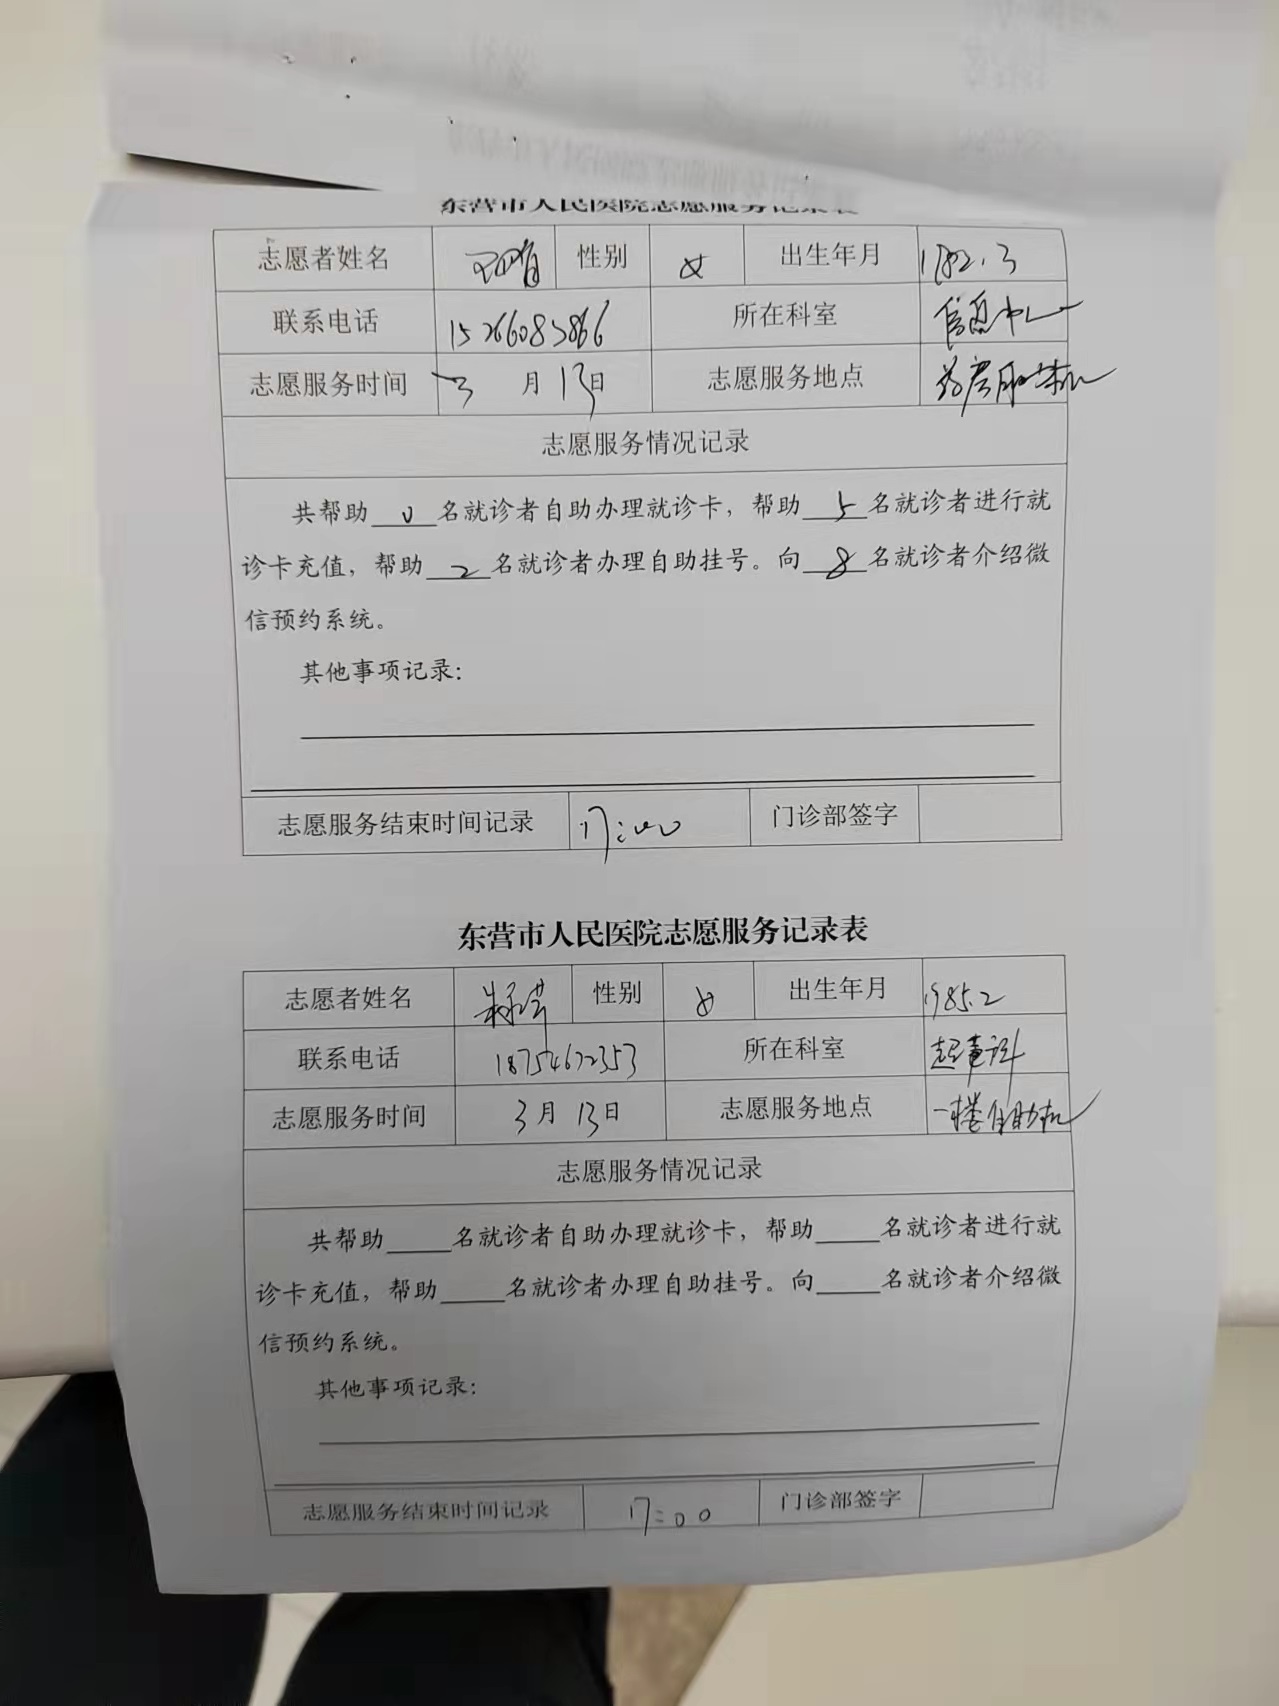 东营市人民医院志愿服务记录表
志愿者姓名 性别 女 出生年月 1982.3
联系电话 15266083866 所在科室 信息中心
志愿服务时间 3月13日 志愿服务地点 药房
志愿服务情况记录
共帮助 0 名就诊者自助办理就诊卡，帮助 5 名就诊者进行就
诊卡充值，帮助 2 名就诊者办理自助挂号。向 8 名就诊者介绍微
信预约系统。
其他事项记录：
志愿服务结束时间记录 17:00 门诊部签字
东营市人民医院志愿服务记录表
志愿者姓名 性别 女 出生年月 1985.2
联系电话 18754672353 所在科室
志愿服务时间 3月13日 志愿服务地点 一楼自助机
志愿服务情况记录
共帮助____名就诊者自助办理就诊卡，帮助____名就诊者进行就
诊卡充值，帮助____名就诊者办理自助挂号。向____名就诊者介绍微
信预约系统。
其他事项记录：
志愿服务结束时间记录 17:00 门诊部签字